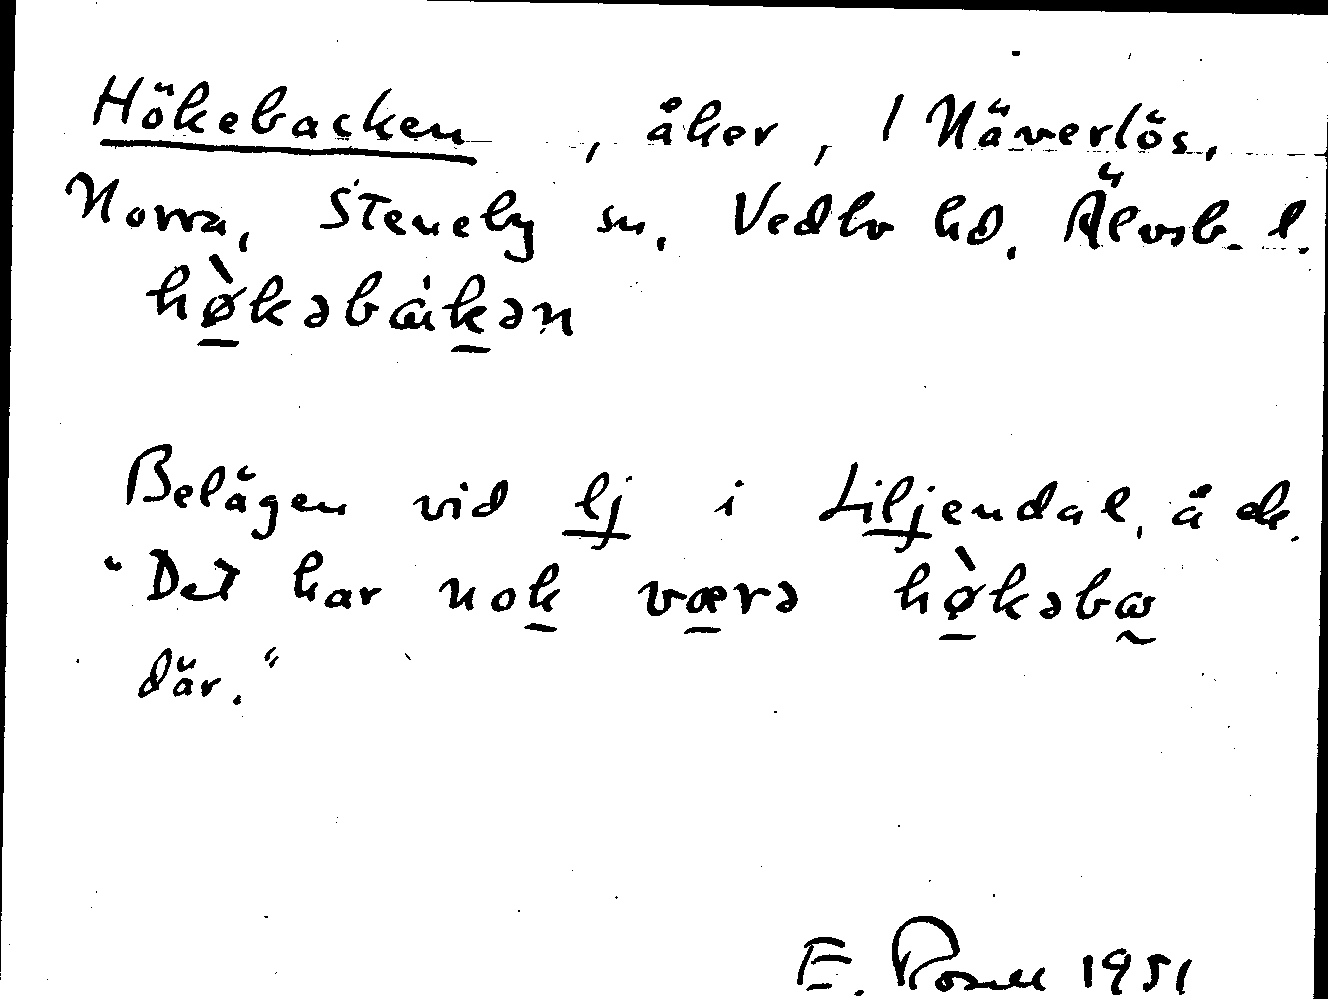 Hökebacken, åker, 1 Näverlös,
Norra, Steneby sn, Vedbo hd. Älvsb. l.
hø̀kəbàkən
Belägen vid lj i Liljendal, å ek.
"Det har nok værə hø̀kəbɷ
där."
E. Rosell 1951